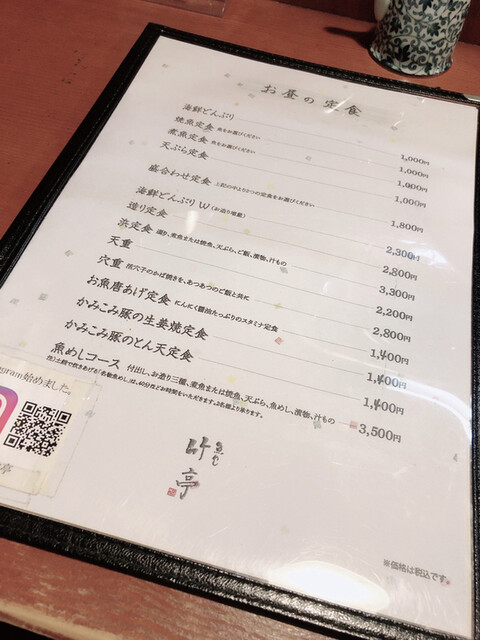 お昼の定食
海鮮どんぶり 1,000円
焼魚定食 魚をお選びください 1,000円
煮魚定食 魚をお選びください 1,000円
天ぷら定食 1,000円
盛合わせ定食 上記の中より2つの定食をお選びください 1,800円
海鮮どんぶりW(お造り増量) 2,300円
造り定食 2,800円
浜定食 造り、煮魚または焼魚、天ぷら、ご飯、漬物、汁もの 3,300円
天重 2,200円
穴重 活穴子のかば焼きを、あつあつのご飯と共に 2,800円
お魚唐あげ定食 にんにく醤油たっぷりのスタミナ定食 1,400円
かみこみ豚の生姜焼定食 1,400円
かみこみ豚のとん天定食 1,400円
魚めしコース 付出し、お造り三種、煮魚または焼魚、天ぷら、魚めし、漬物、汁もの 3,500円
注)土鍋で炊きあげる「名物魚めし」は、40分ほどお時間をいただきます。2名様より承ります。
gram始めました。
亭
魚めし
竹亭
※価格は税込です。